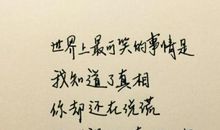 世界上最可笑的事情是
我知道了真相
你却还在说谎